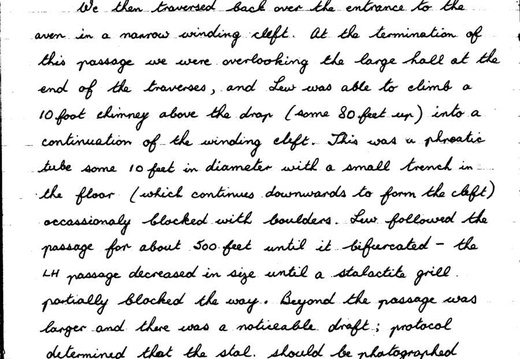 We then traversed back over the entrance to the
aven in a narrow winding cleft. At the termination of
this passage we were overlooking the large hall at the
end of the traverses, and Lew was able to climb a
10 foot chimney above the drop (some 80 feet up) into a
continuation of the winding cleft. This was a phreatic
tube some 10 feet in diameter with a small trench in
the floor (which continues downwards to form the cleft)
occassionaly blocked with boulders. Lew followed the
passage for about 500 feet until it bifurcated - the
LH passage decreased in size until a stalactite grill
partially blocked the way. Beyond the passage was
larger and there was a noticeable draft; protocol
determined that the stal. should be photographed